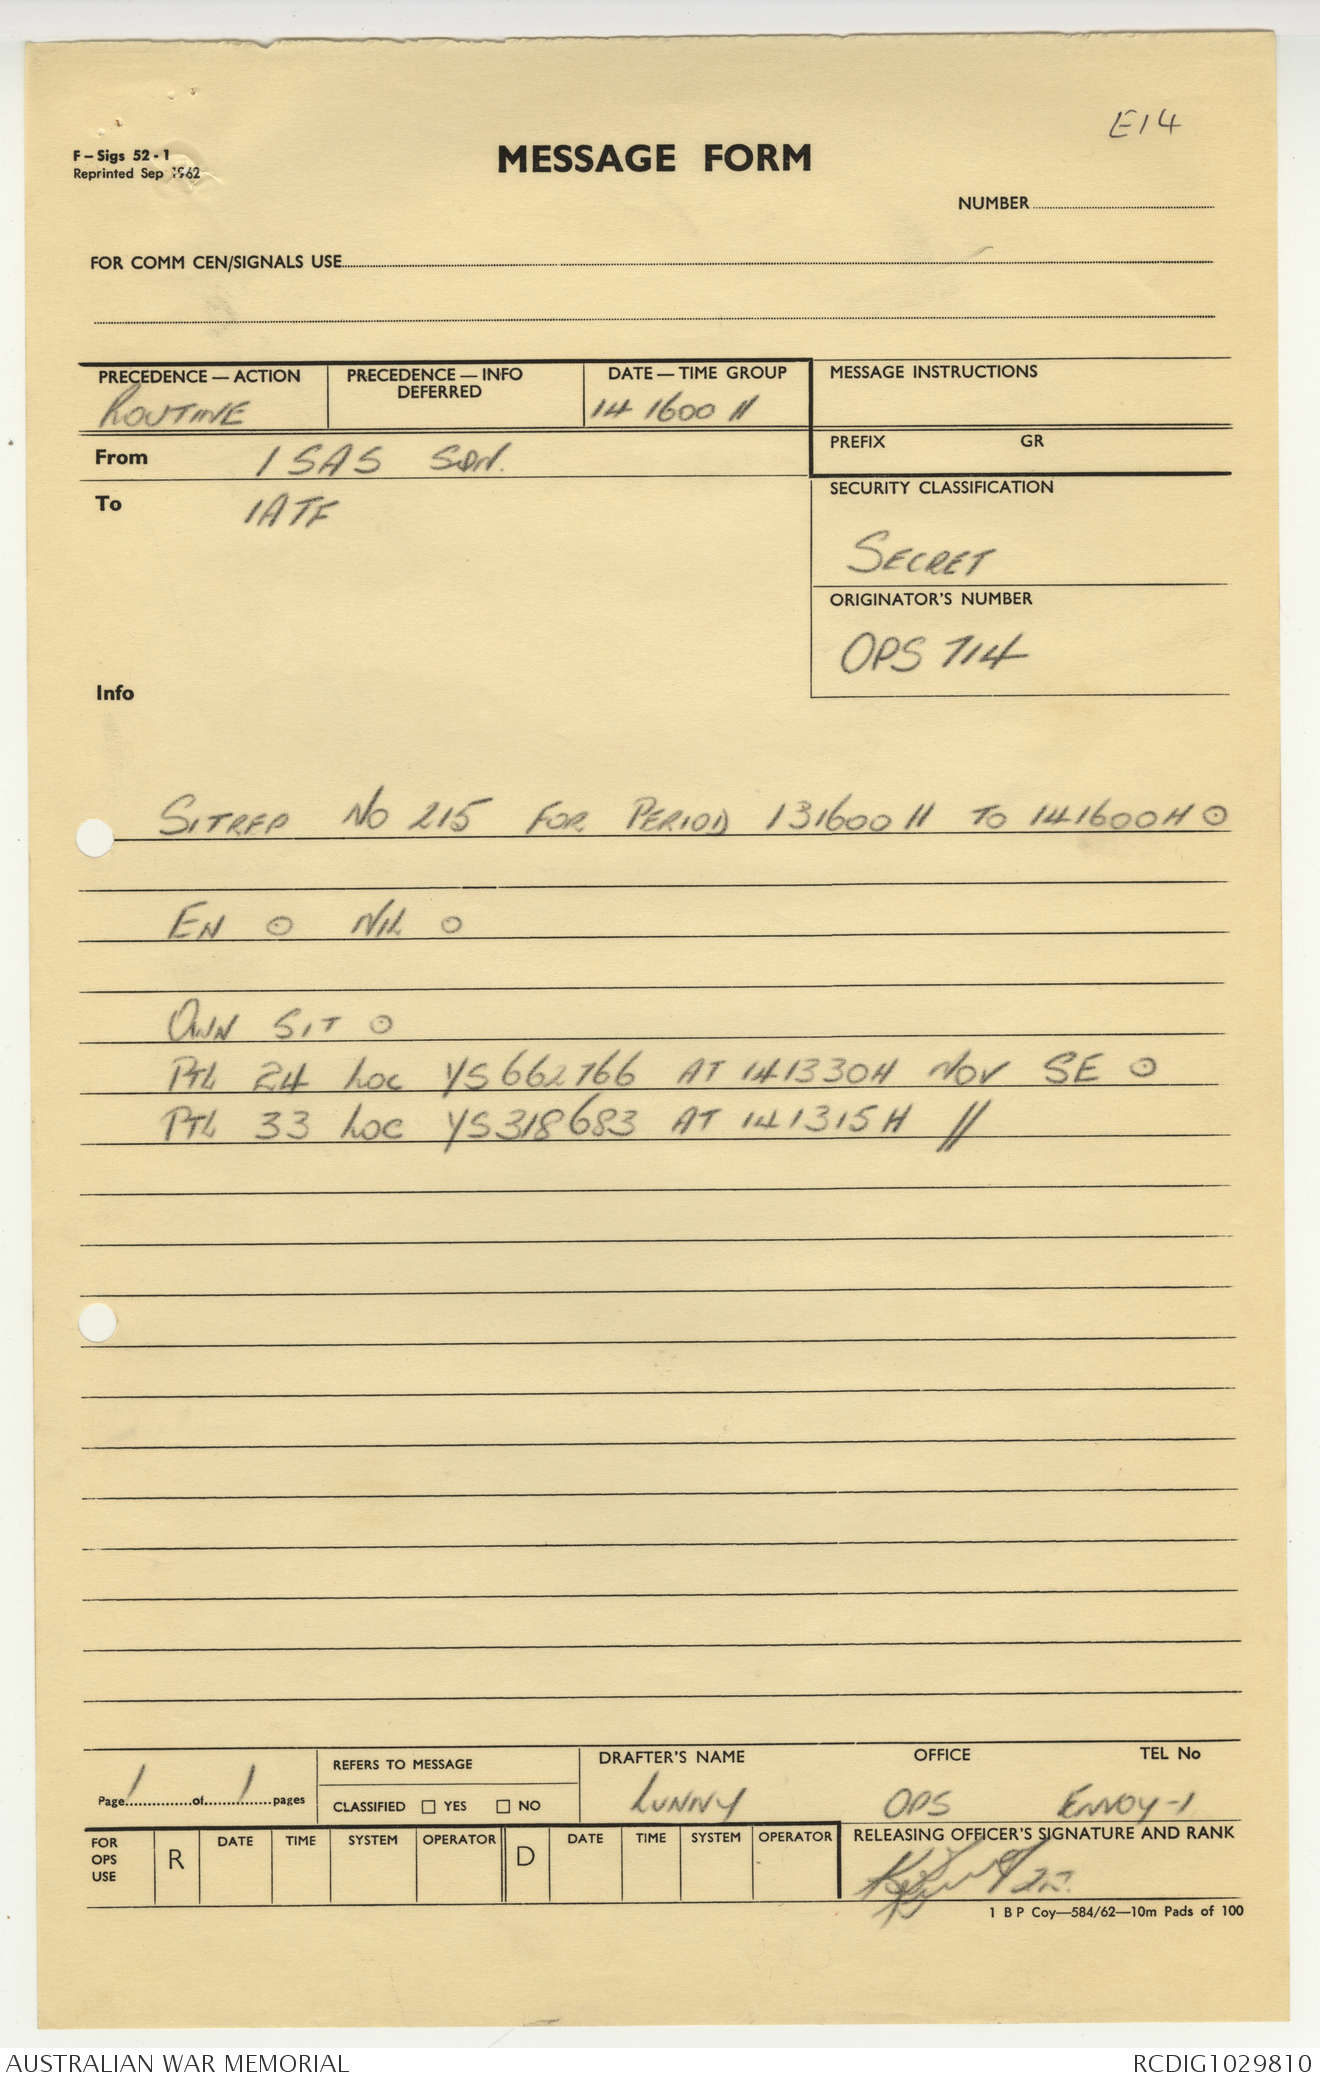 E14
F – Sigs 52 - 1
Reprinted Sep 1962
MESSAGE FORM
NUMBER
FOR COMM CEN/SIGNALS USE
PRECEDENCE — ACTION
ROUTINE
PRECEDENCE — INFO
DEFERRED
DATE — TIME GROUP
141600H
MESSAGE INSTRUCTIONS
PREFIX GR
From 1 SAS SQN.
To 1ATF
SECURITY CLASSIFICATION
SECRET
ORIGINATOR'S NUMBER
OPS 714
Info
SITREP NO 215 FOR PERIOD 131600H TO 141600H ⊙
EN ⊙ NIL ⊙
OWN SIT ⊙
PTL 24 LOC YS662766 AT 141330H MOV SE ⊙
PTL 33 LOC YS318683 AT 141315H //
Page 1 of 1 pages
REFERS TO MESSAGE
CLASSIFIED ☐ YES ☐ NO
DRAFTER'S NAME OFFICE TEL No
LUNNY OPS ENVOY-1
FOR OPS USE R DATE TIME SYSTEM OPERATOR D DATE TIME SYSTEM OPERATOR
RELEASING OFFICER'S SIGNATURE AND RANK
1 B P Coy—584/62—10m Pads of 100
AUSTRALIAN WAR MEMORIAL
RCDIG1029810